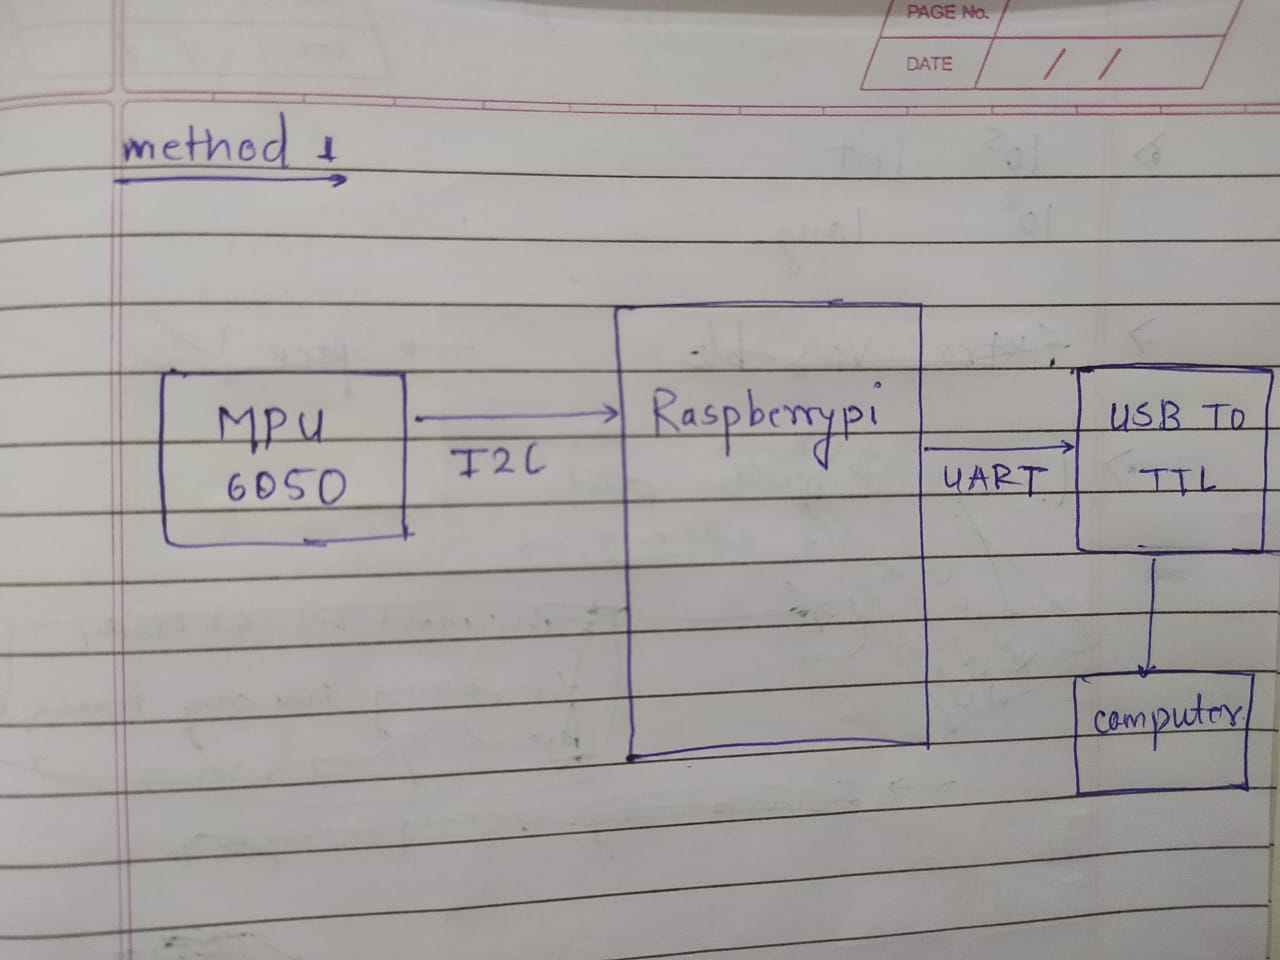 PAGE No.
DATE / /
method 1
MPU
6050
I2C
Raspberrypi
UART
USB TO
TTL
computer